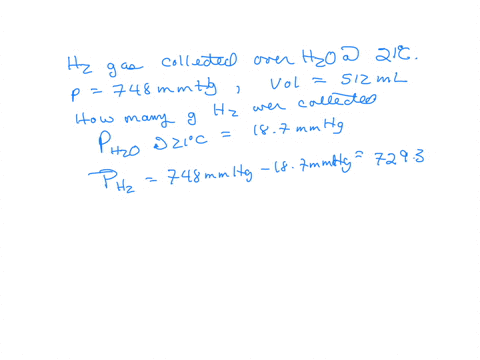 H2 gas collected over H2O @ 21°C.
P = 748 mm Hg, Vol = 512 mL
How many g H2 were collected
PH2O @ 21°C = 18.7 mm Hg
PH2 = 748 mm Hg - 18.7 mm Hg = 729.3